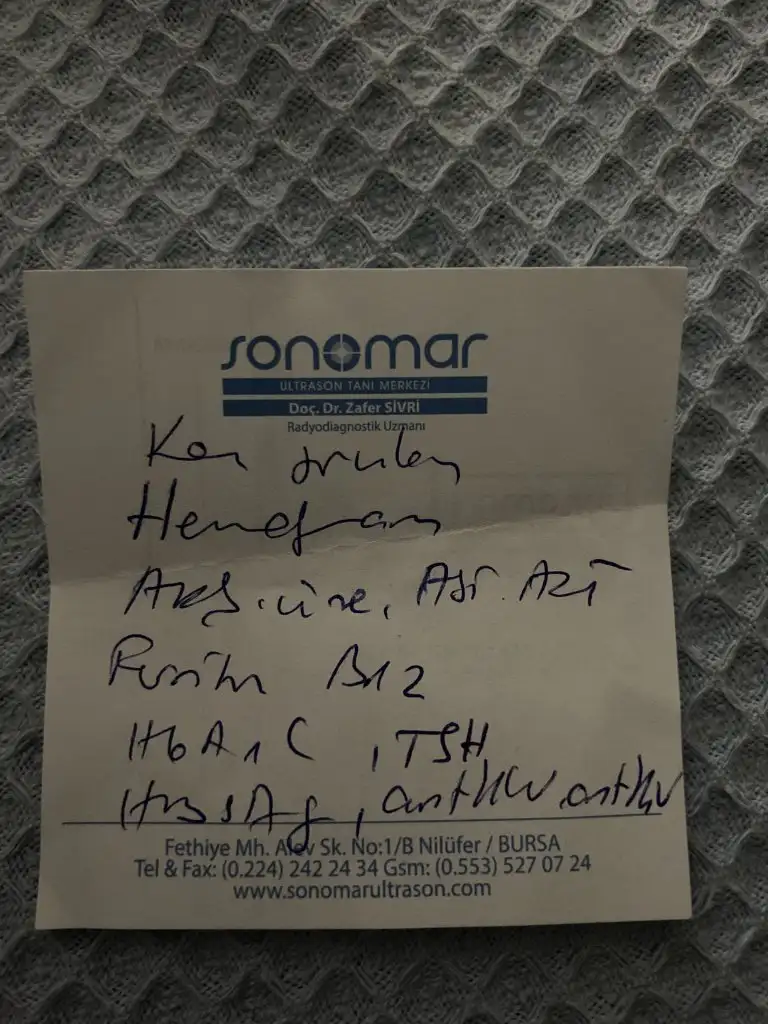 sonomar
ULTRASON TANI MERKEZİ
Doç. Dr. Zafer SİVRİ
Radyodiagnostik Uzmanı
Kan
Hemogram
AKŞ. üre, AST. ALT
Ferritin B12
HbA1C, TSH
HBsAg, antiHCV, antiHIV
Fethiye Mh. Alev Sk. No:1/B Nilüfer / BURSA
Tel & Fax: (0.224) 242 24 34 Gsm: (0.553) 527 07 24
www.sonomarultrason.com